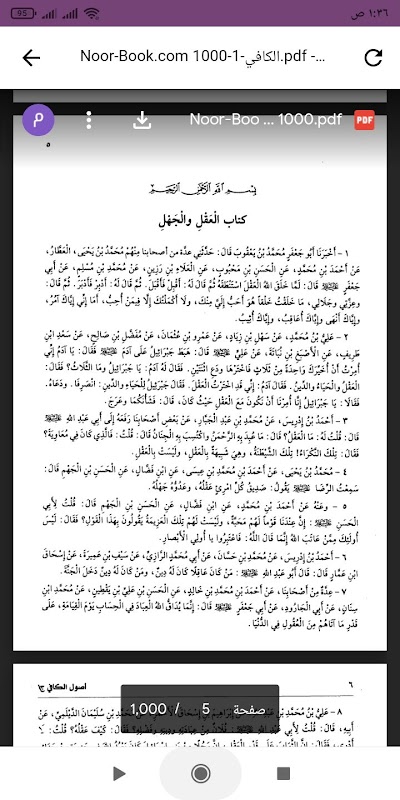 95 ١:٣٦ ص
Noor-Book.com 1000-1-الكافي.pdf -...
م Noor-Boo ... 1000.pdf PDF
٥
بِسْمِ اللهِ الرَّحْمَنِ الرَّحِيمِ
كتاب العَقْلِ والْجَهْلِ
١ - أَخْبَرَنَا أَبُو جَعْفَرٍ مُحَمَّدُ بْنُ يَعْقُوبَ قَالَ: حَدَّثَنِي عِدَّة من أصحابنا مِنْهُمْ مُحَمَّدُ بْنُ يَحْيَى، الْعَطَّارُ،
عَنْ أَحْمَدَ بْنِ مُحَمَّدٍ، عَنِ الْحَسَنِ بْنِ مَحْبُوبٍ، عَنِ الْعَلَاءِ بْنِ رَزِينٍ، عَنْ مُحَمَّدِ بْنِ مُسْلِمٍ، عَنْ أَبِي
جَعْفَرٍ قَالَ: لَمَّا خَلَقَ اللَّهُ الْعَقْلَ اسْتَنْطَقَهُ ثُمَّ قَالَ لَهُ: أَقْبِلْ فَأَقْبَلَ. ثُمَّ قَالَ لَهُ: أَدْبِرْ فَأَدْبَرَ. ثُمَّ قَالَ:
وعِزَّتِي وجَلَالِي، مَا خَلَقْتُ خَلْقاً هُوَ أَحَبُّ إِلَيَّ مِنْكَ، ولَا أَكْمَلْتُكَ إِلَّا فِيمَنْ أُحِبُّ، أَمَا إِنِّي إِيَّاكَ آمُرُ،
وإِيَّاكَ أَنْهَى وإِيَّاكَ أُعَاقِبُ، وإِيَّاكَ أُثِيبُ.
٢ - عَلِيُّ بْنُ مُحَمَّدٍ، عَنْ سَهْلِ بْنِ زِيَادٍ، عَنْ عَمْرِو بْنِ عُثْمَانَ، عَنْ مُفَضَّلِ بْنِ صَالِحٍ، عَنْ سَعْدِ ابْنِ
طَرِيفٍ، عَنِ الْأَصْبَغِ بْنِ نُبَاتَةَ، عَنْ عَلِيٍّ قَالَ: هَبَطَ جَبْرَائِيلُ عَلَى آدَمَ فَقَالَ: يَا آدَمُ إِنِّي
أُمِرْتُ أَنْ أُخَيِّرَكَ وَاحِدَةً مِنْ ثَلَاثٍ فَاخْتَرْهَا ودَعِ اثْنَتَيْنِ. فَقَالَ لَهُ آدَمُ: يَا جَبْرَائِيلُ ومَا الثَّلَاثُ؟ فَقَالَ:
الْعَقْلُ والْحَيَاءُ والدِّينُ. فَقَالَ آدَمُ: إِنِّي قَدِ اخْتَرْتُ الْعَقْلَ. فَقَالَ جَبْرَائِيلُ لِلْحَيَاءِ والدِّينِ: انْصَرِفَا. ودَعَاهُ.
فَقَالَا: يَا جَبْرَائِيلُ إِنَّا أُمِرْنَا أَنْ نَكُونَ مَعَ الْعَقْلِ حَيْثُ كَانَ. قَالَ: فَشَأْنَكُمَا وعَرَجَ.
٣ - أَحْمَدُ بْنُ إِدْرِيسَ، عَنْ مُحَمَّدِ بْنِ عَبْدِ الْجَبَّارِ، عَنْ بَعْضِ أَصْحَابِنَا رَفَعَهُ إِلَى أَبِي عَبْدِ اللهِ
قَالَ: قُلْتُ لَهُ: مَا الْعَقْلُ؟ قَالَ: مَا عُبِدَ بِهِ الرَّحْمَنُ واكْتُسِبَ بِهِ الْجِنَانُ قَالَ: قُلْتُ: فَالَّذِي كَانَ فِي مُعَاوِيَةَ؟
فَقَالَ: تِلْكَ النَّكْرَاءُ! تِلْكَ الشَّيْطَنَةُ، وهِيَ شَبِيهَةٌ بِالْعَقْلِ، ولَيْسَتْ بِالْعَقْلِ.
٤ - مُحَمَّدُ بْنُ يَحْيَى، عَنْ أَحْمَدَ بْنِ مُحَمَّدِ بْنِ عِيسَى، عَنِ ابْنِ فَضَّالٍ، عَنِ الْحَسَنِ بْنِ الْجَهْمِ قَالَ:
سَمِعْتُ الرِّضَا يَقُولُ: صَدِيقُ كُلِّ امْرِئٍ عَقْلُهُ، وعَدُوُّهُ جَهْلُهُ.
٥ - وعَنْهُ عَنْ أَحْمَدَ بْنِ مُحَمَّدٍ، عَنِ ابْنِ فَضَّالٍ، عَنِ الْحَسَنِ بْنِ الْجَهْمِ قَالَ: قُلْتُ لِأَبِي
الْحَسَنِ : إِنَّ عِنْدَنَا قَوْماً لَهُمْ مَحَبَّةٌ، ولَيْسَتْ لَهُمْ تِلْكَ الْعَزِيمَةُ يَقُولُونَ بِهَذَا الْقَوْلِ؟ فَقَالَ: لَيْسَ
أُولَئِكَ مِمَّنْ عَاتَبَ اللَّهُ إِنَّمَا قَالَ اللَّهُ: فَاعْتَبِرُوا يا أُولِي الْأَبْصارِ.
٦ - أَحْمَدُ بْنُ إِدْرِيسَ، عَنْ مُحَمَّدِ بْنِ حَسَّانَ، عَنْ أَبِي مُحَمَّدٍ الرَّازِيِّ، عَنْ سَيْفِ بْنِ عَمِيرَةَ، عَنْ إِسْحَاقَ
ابْنِ عَمَّارٍ قَالَ: قَالَ أَبُو عَبْدِ اللهِ : مَنْ كَانَ عَاقِلًا كَانَ لَهُ دِينٌ، ومَنْ كَانَ لَهُ دِينٌ دَخَلَ الْجَنَّةَ.
٧ - عِدَّةٌ مِنْ أَصْحَابِنَا، عَنْ أَحْمَدَ بْنِ مُحَمَّدِ بْنِ خَالِدٍ، عَنِ الْحَسَنِ بْنِ عَلِيِّ بْنِ يَقْطِينٍ، عَنْ مُحَمَّدِ ابْنِ
سِنَانٍ، عَنْ أَبِي الْجَارُودِ، عَنْ أَبِي جَعْفَرٍ قَالَ: إِنَّمَا يُدَاقُّ اللَّهُ الْعِبَادَ فِي الْحِسَابِ يَوْمَ الْقِيَامَةِ، عَلَى
قَدْرِ مَا آتَاهُمْ مِنَ الْعُقُولِ فِي الدُّنْيَا.
٦ أصول الكافي ج١
صفحة 5 / 1,000
٨ - عَلِيُّ بْنُ مُحَمَّدِ بْنِ عَبْدِ اللهِ عَنْ إِبْرَاهِيمَ بْنِ إِسْحَاقَ الْأَحْمَرِ عَنْ مُحَمَّدِ بْنِ سُلَيْمَانَ الدَّيْلَمِيِّ، عَنْ
أَبِيهِ، قَالَ: قُلْتُ لِأَبِي عَبْدِ اللهِ : فُلَانٌ مِنْ عِبَادَتِهِ ودِينِهِ وفَضْلِهِ؟ فَقَالَ: كَيْفَ عَقْلُهُ؟ قُلْتُ: لَا